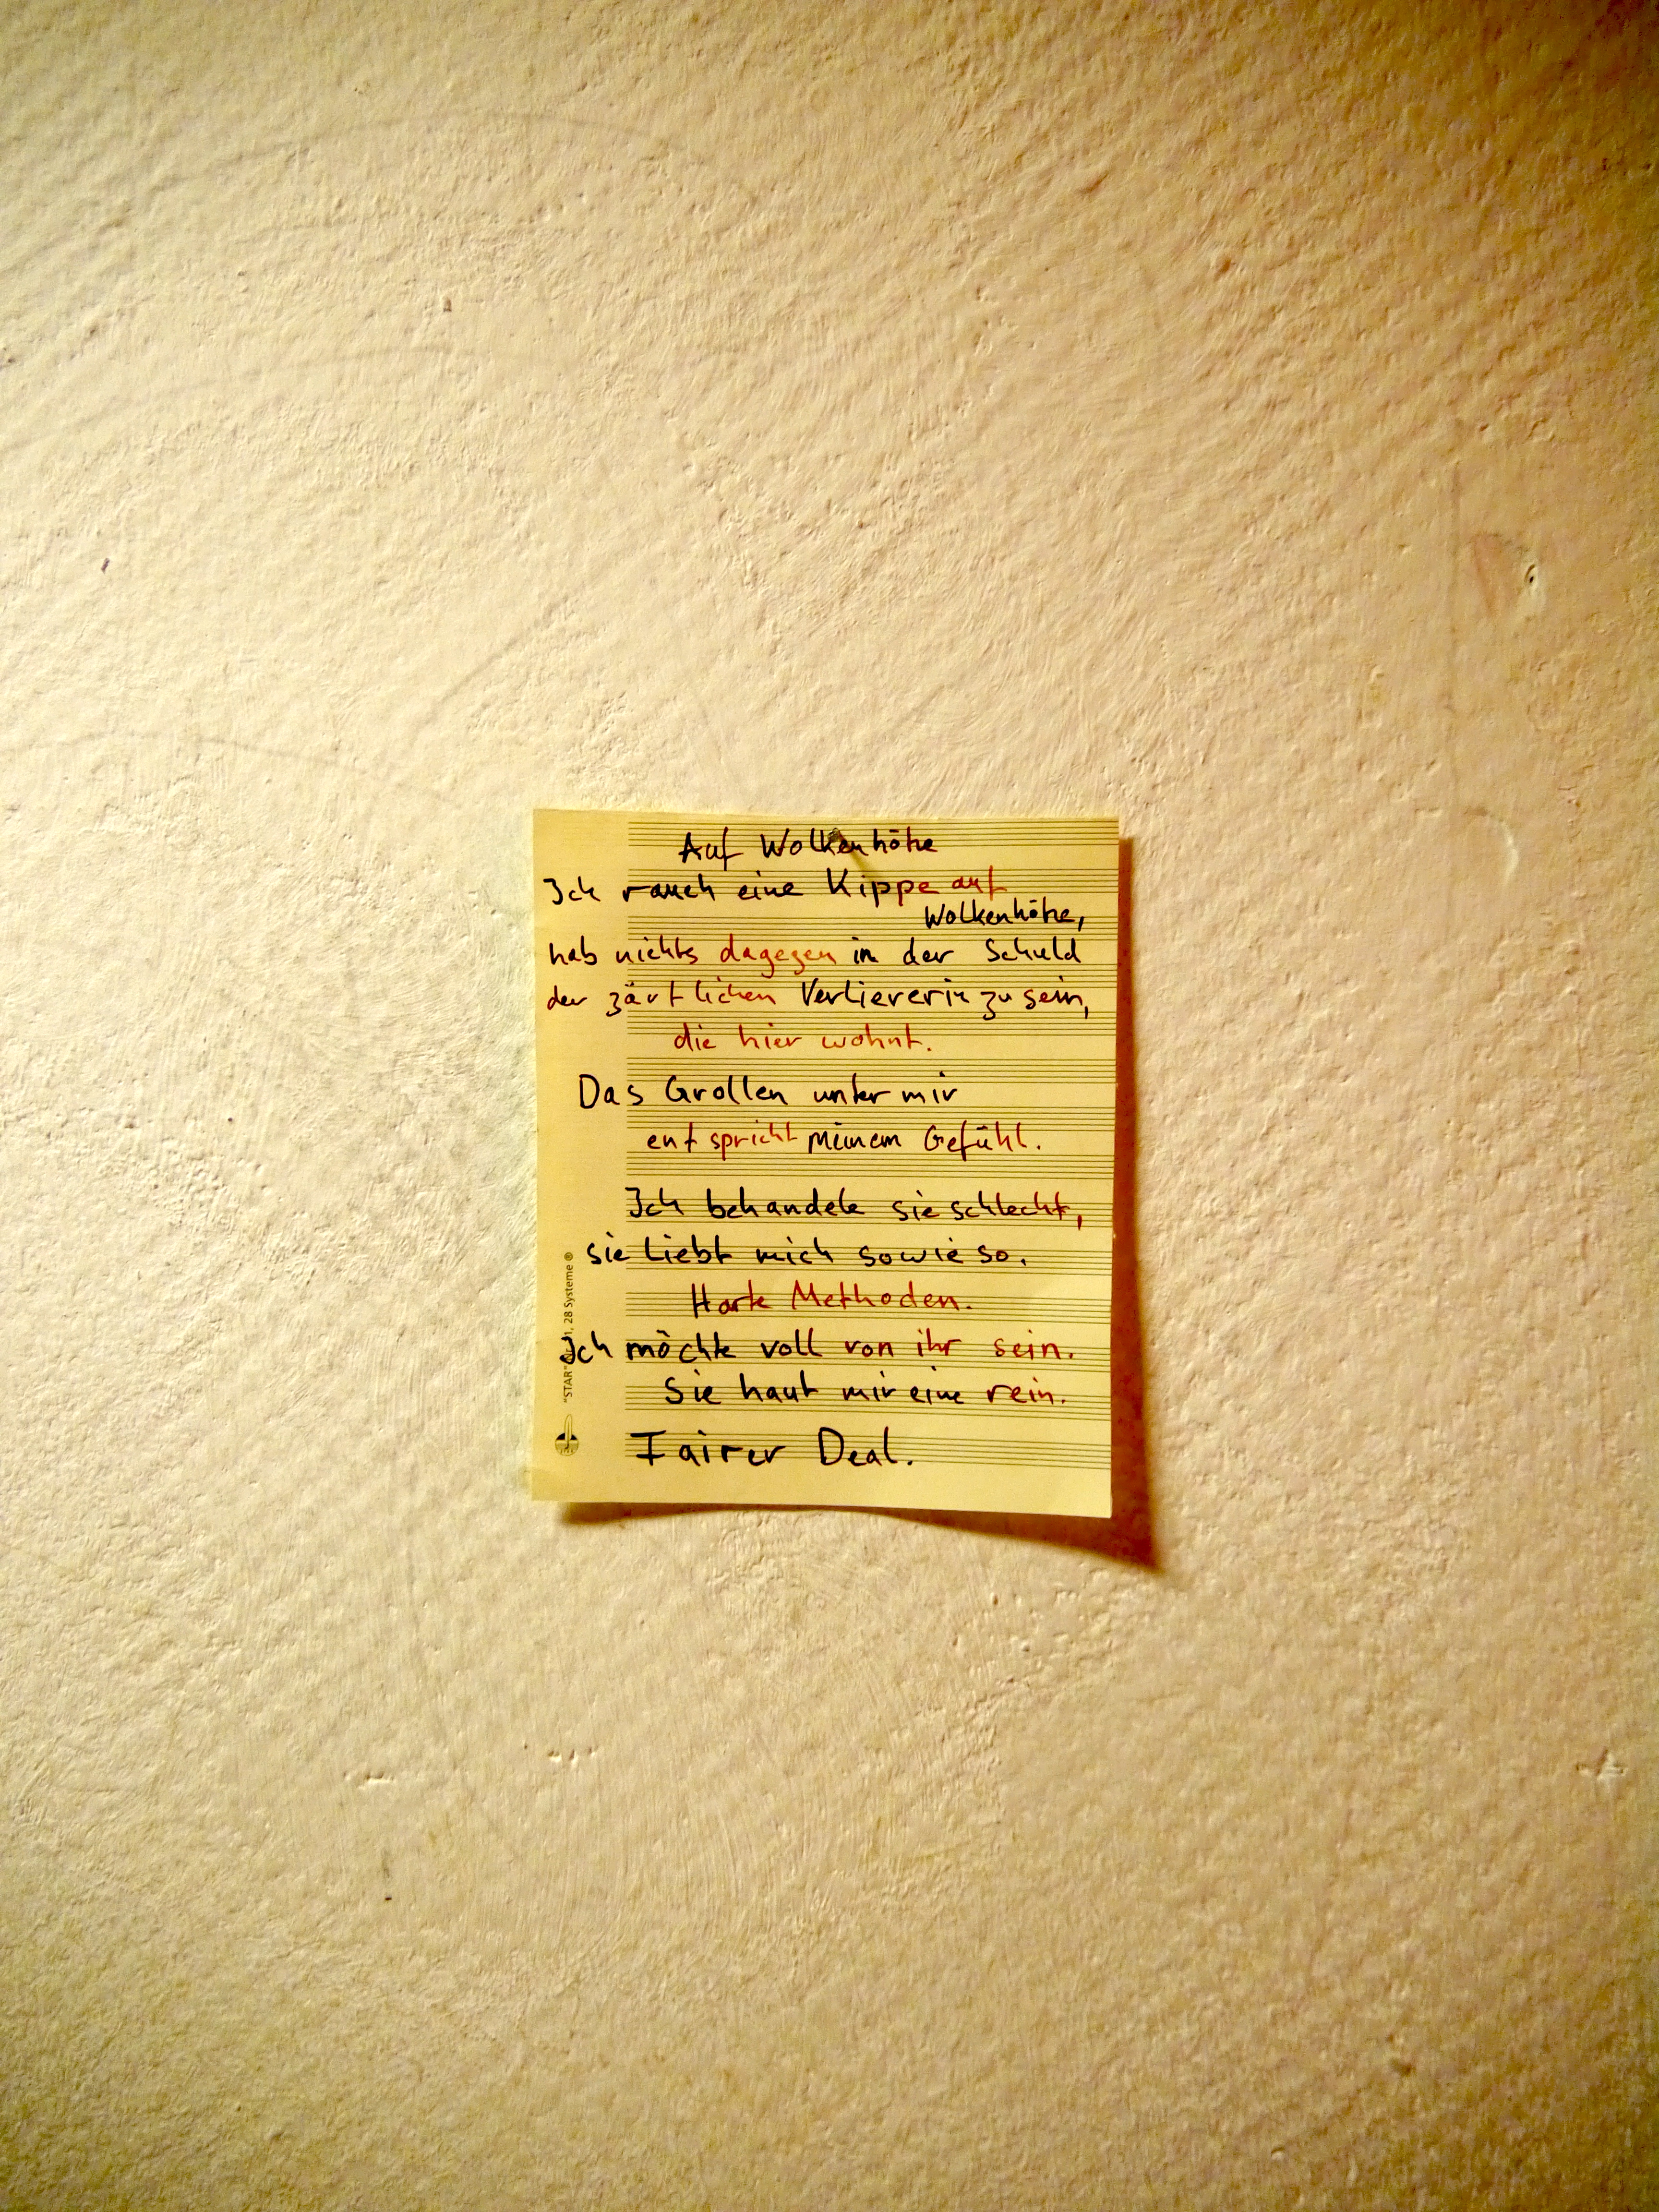 Auf Wolkenhöhe
Ich rauch eine Kippe auf
Wolkenhöhe,
hab nichts dagegen in der Schuld
der zärtlichen Verliererin zu sein,
die hier wohnt.
Das Grollen unter mir
entspricht meinem Gefühl.
Ich behandele sie schlecht,
sie liebt mich sowieso.
Harte Methoden.
Ich möchte voll von ihr sein.
Sie haut mir eine rein.
Fairer Deal.
"STAR" 28 Systeme ®